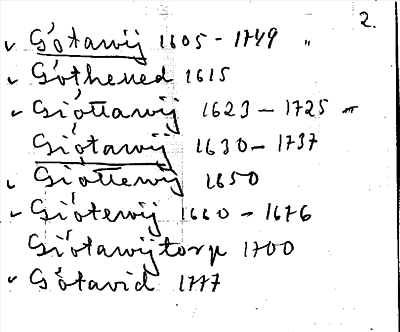 2.
Giötawij 1605 - 1749 "
Göthened 1615
Giöttawij 1623 - 1725 -
Giötawij 1630 - 1737
Giöttewij 1650
Giötewij 1660 - 1676
Giötawijtorp 1700
Götavid 1777